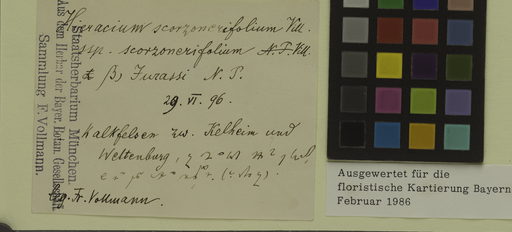 Hieracium scorzonerifolium Vill.
ssp. scorzonerifolium N. P. Vill.
β) Jurassi N. P.
29. VI. 96.
Kalkfelsen zw. Kelheim und
Weltenburg,
Fr. Vollmann.
Staatsherbarium München.
Aus dem Herbar der Bayer. Botan. Gesellschaft
Sammlung F. Vollmann.
Ausgewertet für die
floristische Kartierung Bayern
Februar 1986